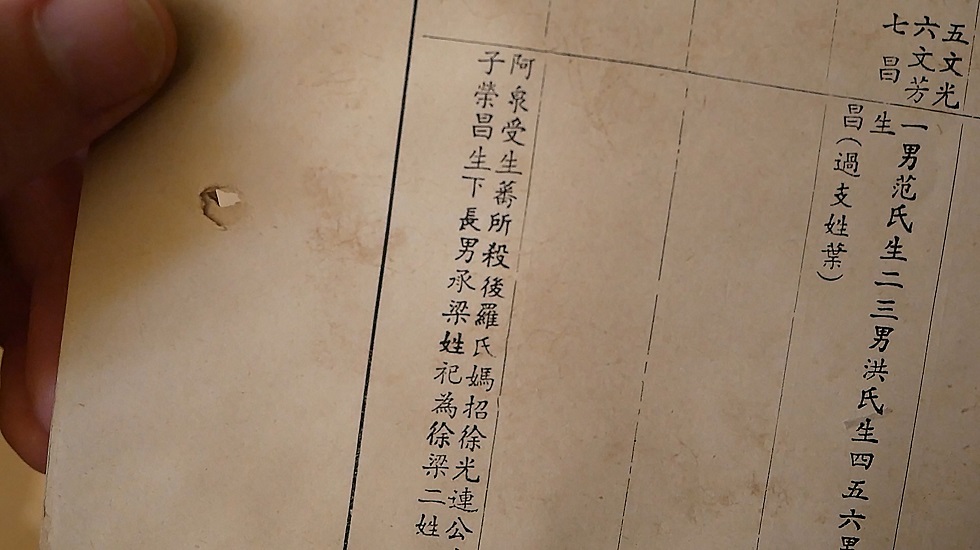 五文光
六文芳
七 昌
一男范氏生二三男洪氏生四五六男
生
昌(過支姓葉)
阿泉受生蕃所殺後羅氏媽招徐光連公
子榮昌生下長男承梁姓祀為徐梁二姓